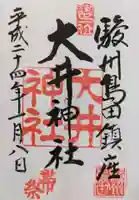 駿州島田鎮座
大井神社
大井神社
帯祭
平成二十四年十一月八日